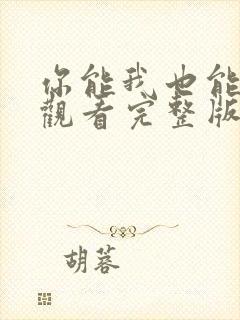 你能我也能
觀看完整版
胡蓉